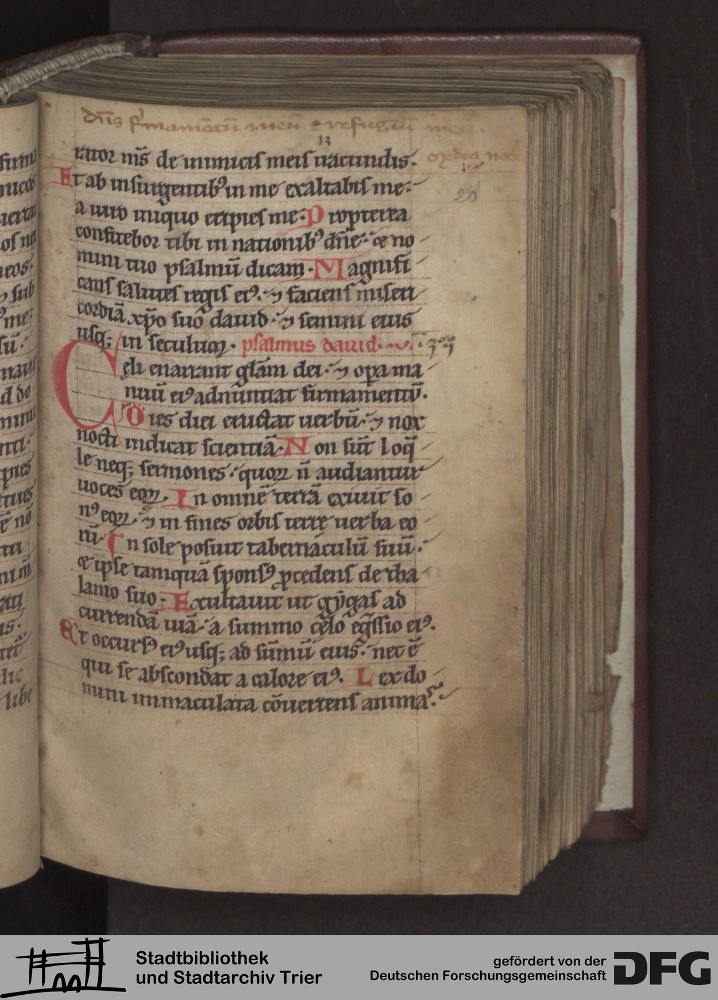 dn̄s firmam̄tū meū & refugiū meū
13
rator m̄s de inimicis meis iracundis·
20
Et ab insurgentibꝰ in me exaltabis me·
a uiro iniquo eripies me· Propterea
confitebor tibi in nationibꝰ dn̄e· & no
mini tuo psalmū dicam· Magnifi
cans salutes regis eiꝰ· ⁊ faciens miseri
cordiā xp̄o suo dauid· ⁊ semini eius
usq; in seculum· psalmus dauid·
Cęli enarrant glām dei· ⁊ opa ma
nuū eiꝰ adnuntiat firmamentū·
Dies diei eructat uerbū· ⁊ nox
nocti indicat scientiā· Non sūt loq̄
le neq; sermones· quoꝝ n̄ audiantur
uoces eoꝝ· In omnē terrā exiuit so
nꝰ eoꝝ· ⁊ in fines orbis terre uerba eo
rū· In sole posuit tabernaculū suū·
& ipse tamquā sponsꝰ ꝓcedens de tha
lamo suo· Exultauit ut gygas ad
currendā uiā· a summo cęlo egssio eiꝰ·
Et occursꝰ eiꝰ usq; ad sūmū eius· nec ē
qui se abscondat a calore eiꝰ· Lex do
mini immaculata cōuertens animas·
Stadtbibliothek
und Stadtarchiv Trier
gefördert von der
Deutschen Forschungsgemeinschaft
DFG